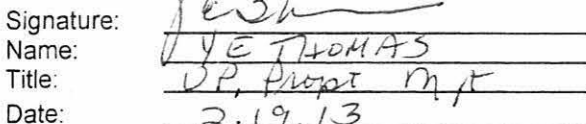 Signature:
Name: YE THOMAS
Title: VP, Propt Mgt
Date: 2.19.13